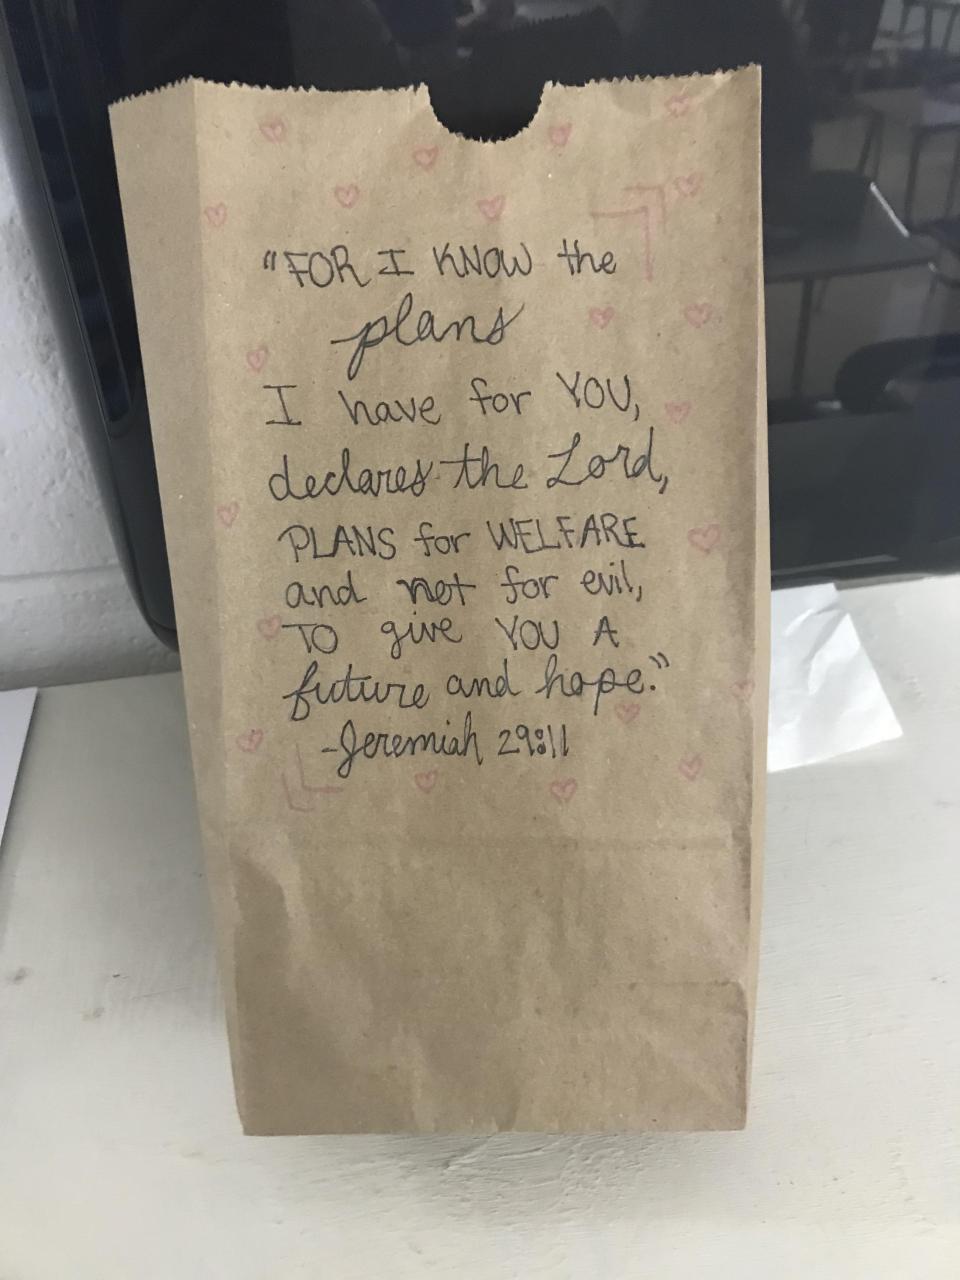 "FOR I KNOW the
plans
I have for YOU,
declares the Lord,
PLANS for WELFARE
and not for evil,
TO give YOU A
future and hope."
-Jeremiah 29:11